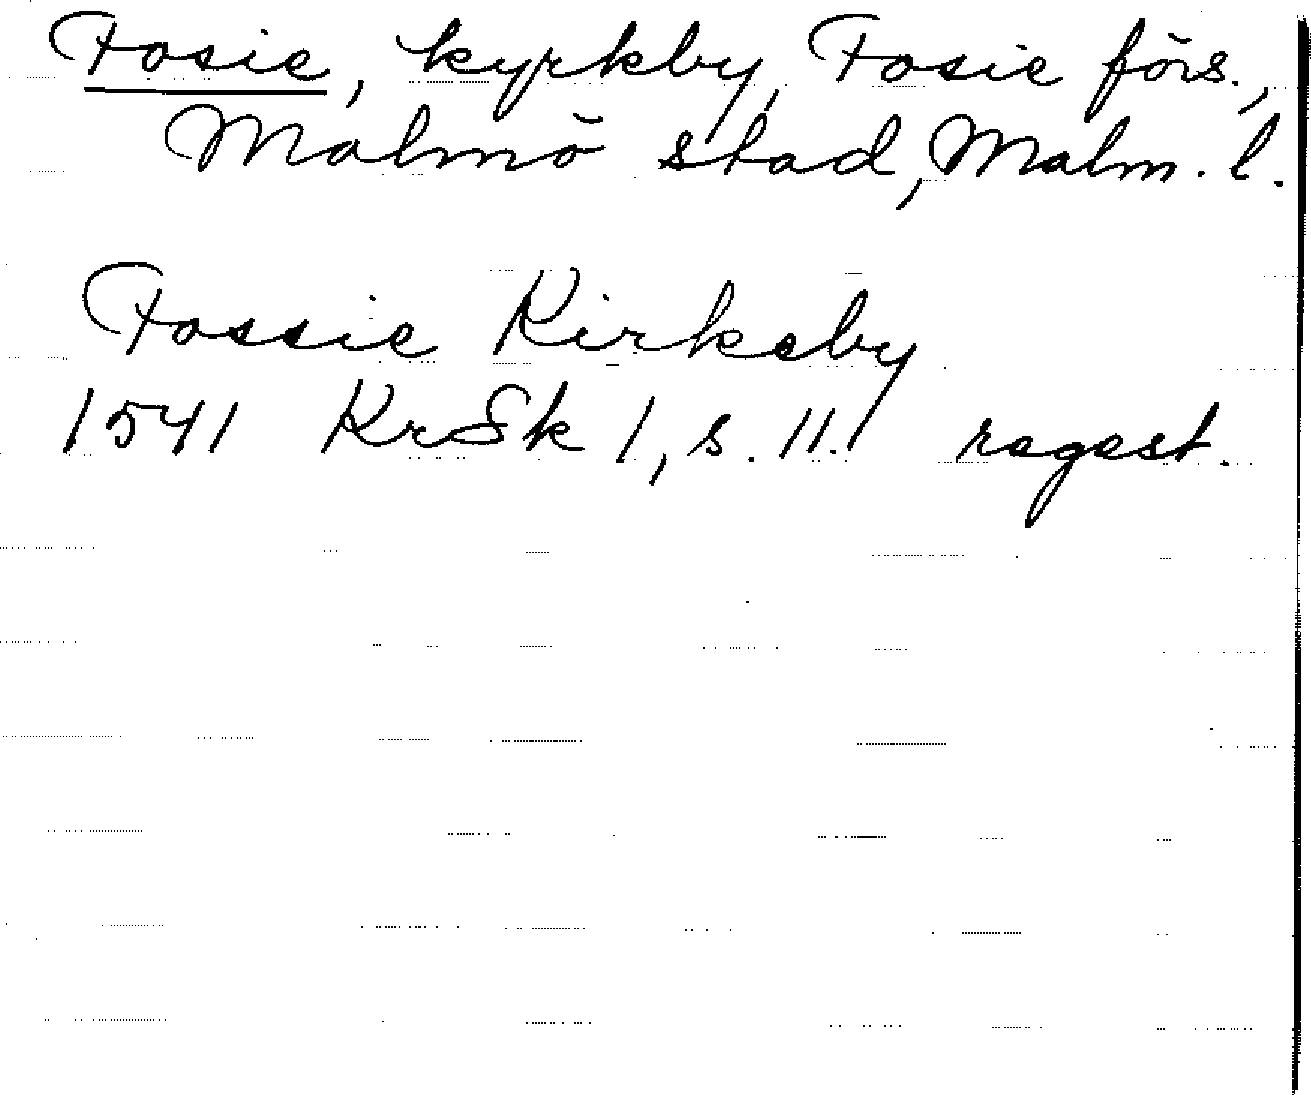 Fosie, kyrkby, Fosie förs.,
Malmö stad, Malm. l.
Fossie Kirkeby
1541 KrSk 1, s. 11. regest.